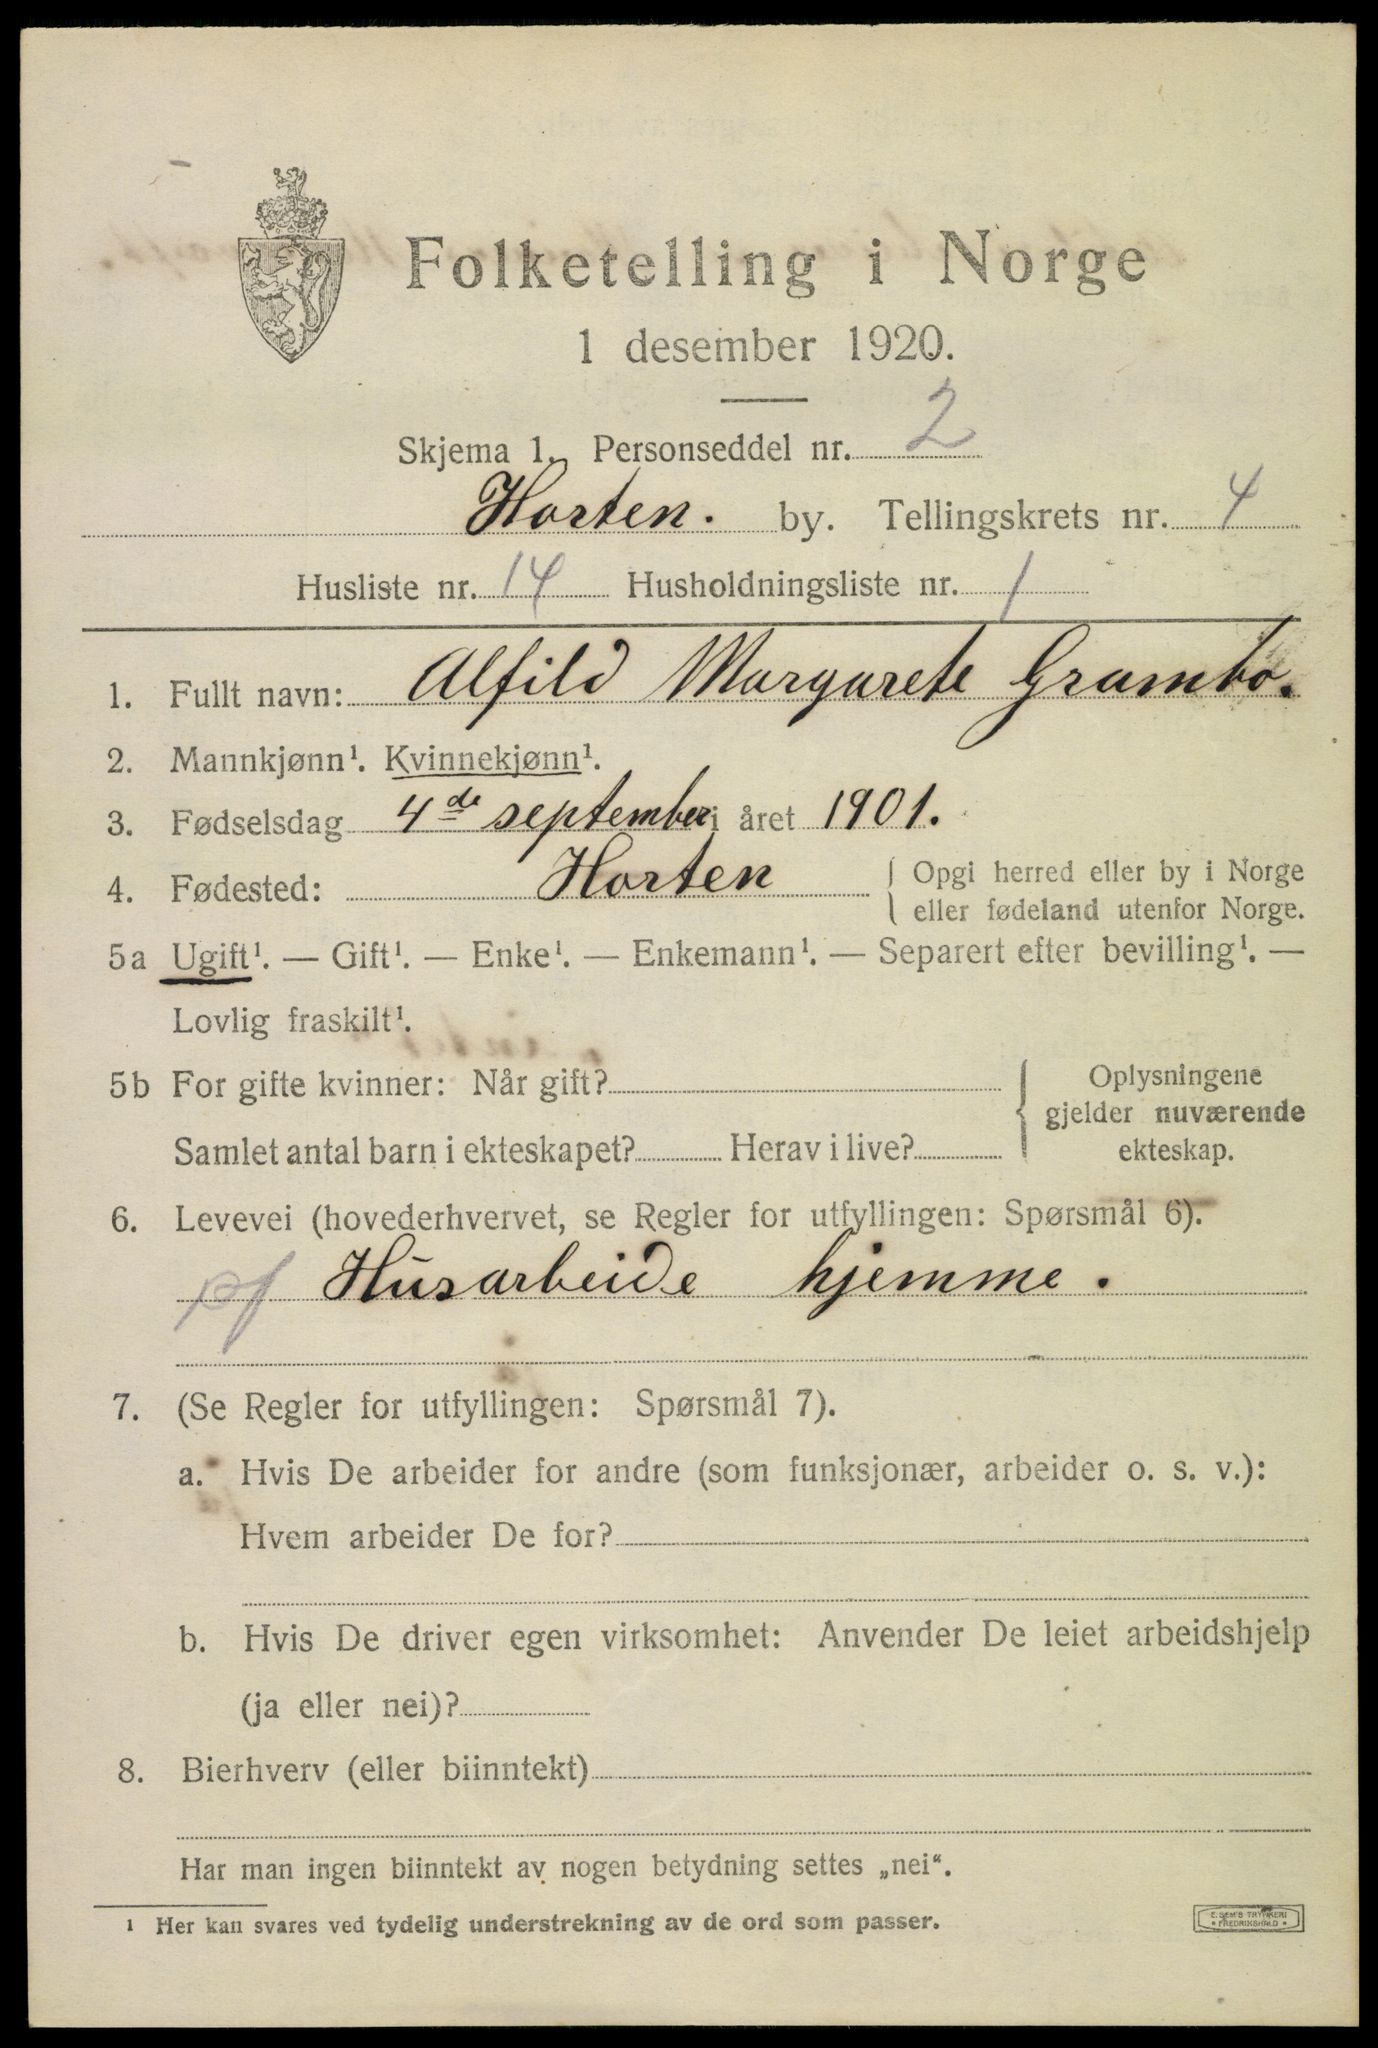 Folketelling i Norge
1 desember 1920.
Skjema 1. Personseddel nr. 2
Horten. by. Tellingskrets nr. 4
Husliste nr. 14 Husholdningsliste nr. 1
1. Fullt navn: Alfild Margarete Grambo.
2. Mannkjønn¹. Kvinnekjønn¹.
3. Fødselsdag 4de september i året 1901.
4. Fødested: Horten { Opgi herred eller by i Norge
eller fødeland utenfor Norge.
5a Ugift¹. — Gift¹. — Enke¹. — Enkemann¹. — Separert efter bevilling¹. —
Lovlig fraskilt¹.
5b For gifte kvinner: Når gift? { Oplysningene
gjelder nuværende
Samlet antal barn i ekteskapet? Herav i live? ekteskap.
6. Levevei (hovederhvervet, se Regler for utfyllingen: Spørsmål 6).
pf Husarbeide hjemme.
7. (Se Regler for utfyllingen: Spørsmål 7).
a. Hvis De arbeider for andre (som funksjonær, arbeider o. s. v.):
Hvem arbeider De for?
b. Hvis De driver egen virksomhet: Anvender De leiet arbeidshjelp
(ja eller nei)?
8. Bierhverv (eller biinntekt)
Har man ingen biinntekt av nogen betydning settes „nei“.
¹ Her kan svares ved tydelig understrekning av de ord som passer.
E. SEM'S TRYKKERI
FREDRIKSHALD